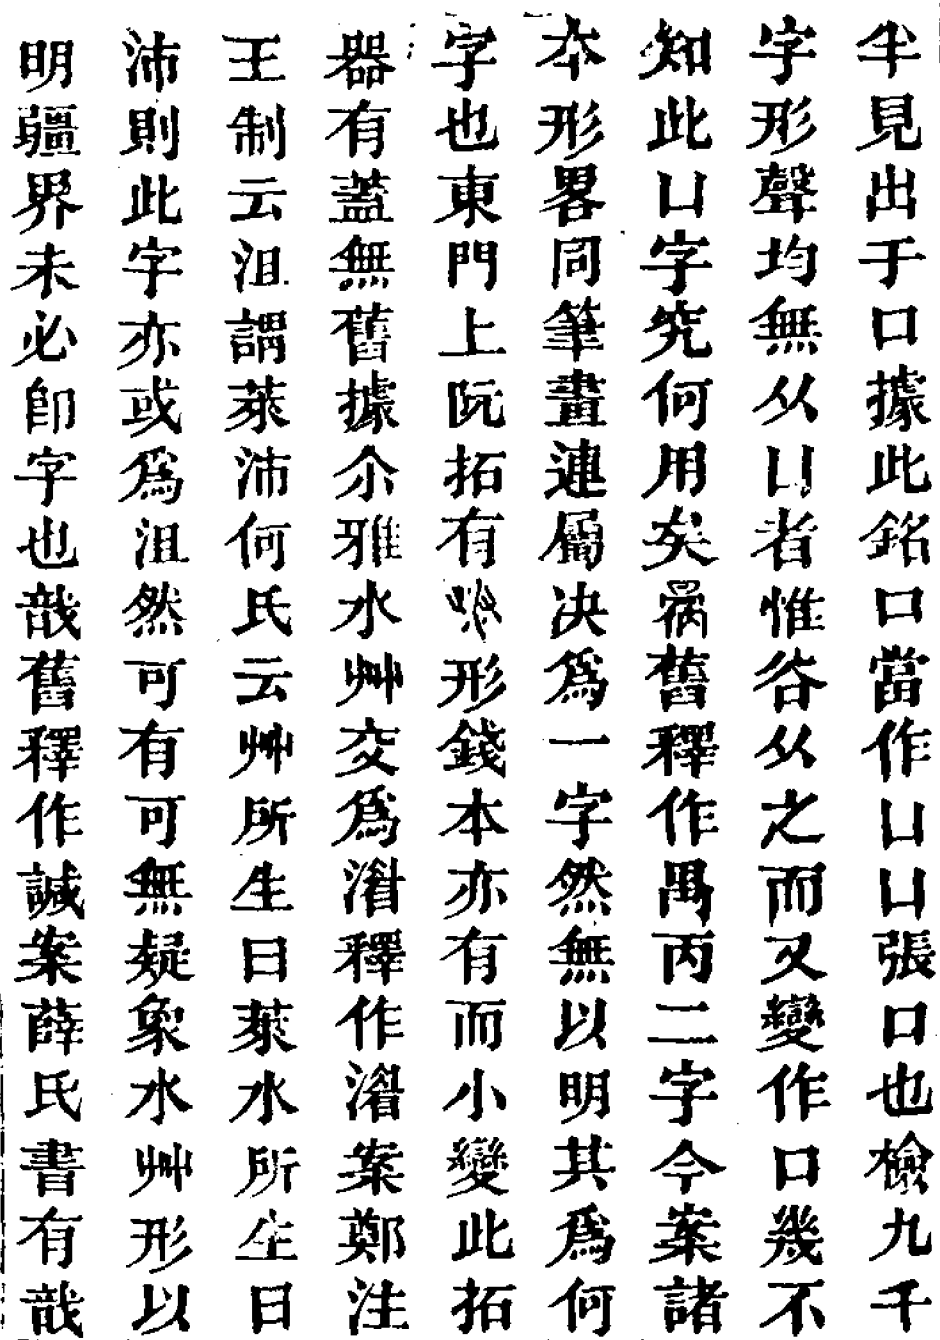 半見出于口據此銘口當作凵凵張口也檢九千
字形聲均無从凵者惟谷从之而又變作口幾不
知此凵字究何用矣 舊釋作禺丙二字今案諸
本形畧同筆畫連屬決爲一字然無以明其爲何
字也東門上阮拓有 形錢本亦有而小變此拓
器有蓋無舊據尒雅水艸交爲湝釋作湝案鄭注
王制云沮謂萊沛何氏云艸所生曰萊水所生曰
沛則此字亦或爲沮然可有可無疑象水艸形以
明疆界未必卽字也 舊釋作諴案薛氏書有